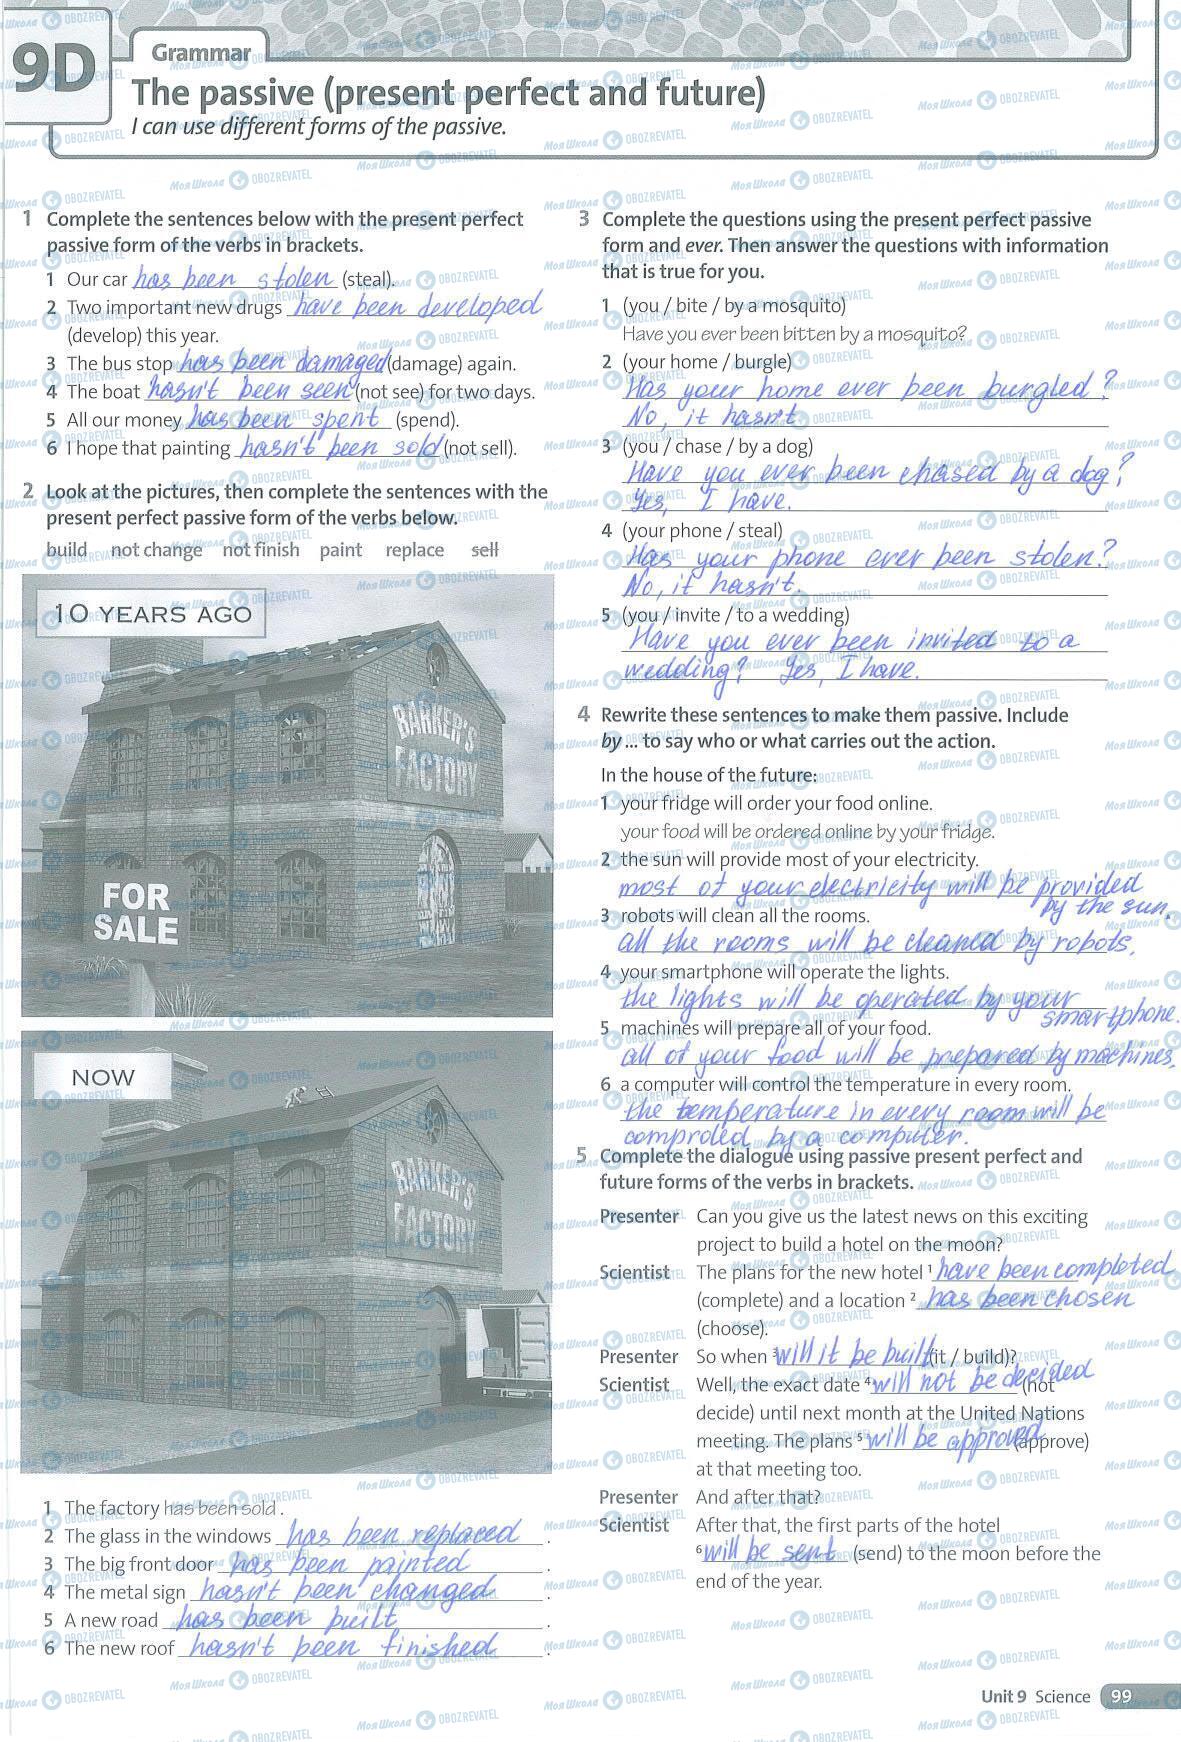 9D
Grammar
The passive (present perfect and future)
I can use different forms of the passive.
1 Complete the sentences below with the present perfect
passive form of the verbs in brackets.
1 Our car has been stolen (steal).
2 Two important new drugs have been developed
(develop) this year.
3 The bus stop has been damaged (damage) again.
4 The boat hasn't been seen (not see) for two days.
5 All our money has been spent (spend).
6 I hope that painting hasn't been sold (not sell).
2 Look at the pictures, then complete the sentences with the
present perfect passive form of the verbs below.
build not change not finish paint replace sell
10 YEARS AGO
BARKER'S
FACTORY
FOR
SALE
NOW
BARKER'S
FACTORY
1 The factory has been sold .
2 The glass in the windows has been replaced .
3 The big front door has been painted .
4 The metal sign hasn't been changed .
5 A new road has been built .
6 The new roof hasn't been finished .
3 Complete the questions using the present perfect passive
form and ever. Then answer the questions with information
that is true for you.
1 (you / bite / by a mosquito)
Have you ever been bitten by a mosquito?
2 (your home / burgle)
Has your home ever been burgled?
No, it hasn't
3 (you / chase / by a dog)
Have you ever been chased by a dog?
Yes, I have.
4 (your phone / steal)
Has your phone ever been stolen?
No, it hasn't.
5 (you / invite / to a wedding)
Have you ever been invited to a
wedding? Yes, I have.
4 Rewrite these sentences to make them passive. Include
by ... to say who or what carries out the action.
In the house of the future:
1 your fridge will order your food online.
your food will be ordered online by your fridge.
2 the sun will provide most of your electricity.
most of your electricity will be provided
by the sun.
3 robots will clean all the rooms.
all the rooms will be cleaned by robots.
4 your smartphone will operate the lights.
the lights will be operated by your
smartphone.
5 machines will prepare all of your food.
all of your food will be prepared by machines.
6 a computer will control the temperature in every room.
the temperature in every room will be
comproled by a computer.
5 Complete the dialogue using passive present perfect and
future forms of the verbs in brackets.
Presenter Can you give us the latest news on this exciting
project to build a hotel on the moon?
Scientist The plans for the new hotel 1 have been completed
(complete) and a location 2 has been chosen
(choose).
Presenter So when 3 will it be built (it / build)?
Scientist Well, the exact date 4 will not be decided (not
decide) until next month at the United Nations
meeting. The plans 5 will be approved (approve)
at that meeting too.
Presenter And after that?
Scientist After that, the first parts of the hotel
6 will be sent (send) to the moon before the
end of the year.
Unit 9 Science 99
Моя Школа OBOZREVATEL